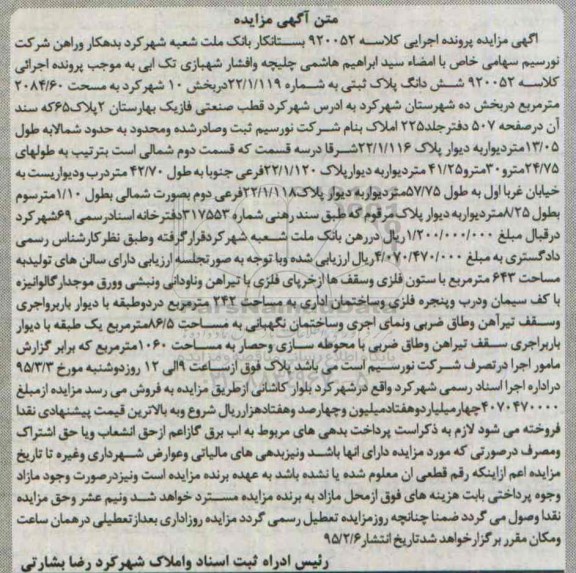 متن آگهی مزایده
آگهی مزایده پرونده اجرایی کلاسه ۹۲۰۰۵۲ بستانکار بانک ملت شعبه شهرکرد بدهکار وراهن شرکت
نورسیم سهامی خاص با امضاء سید ابراهیم هاشمی چلیچه وافشار شهبازی تک ابی به موجب پرونده اجرائی
کلاسه ۹۲۰۰۵۲ شش دانگ پلاک ثبتی به شماره ۲۲/۱/۱۱۹دربخش ۱۰ شهرکرد به مسحت ۲۰۸۴/۶۰
مترمربع دربخش ده شهرستان شهرکرد به ادرس شهرکرد قطب صنعتی فازیک بهارستان ۲پلاک۶۵که سند
آن درصفحه ۵۰۷ دفترجلد۲۲۵ املاک بنام شرکت نورسیم ثبت وصادرشده ومحدود به حدود شمالابه طول
۱۳/۰۵متردیواربه دیوار پلاک ۲۲/۱/۱۱۶شرقا درسه قسمت که قسمت دوم شمالی است بترتیب به طولهای
۲۴/۷۵مترو۳۰مترو۴۱/۲۵ متردیواربه دیوارپلاک ۲۲/۱/۱۲۰فرعی جنوبا به طول ۴۲/۷۰ متردرب ودیواریست به
خیابان غربا اول به طول ۵۷/۷۵متردیواربه دیوار پلاک۲۲/۱/۱۱۸فرعی دوم بصورت شمالی بطول ۱/۱۰مترسوم
بطول ۸/۲۵متردیواربه دیوار پلاک مرقوم که طبق سند رهنی شماره ۳۱۷۵۵۳دفترخانه اسنادرسمی ۶۹شهرکرد
درقبال مبلغ ۱/۲۰۰/۰۰۰/۰۰۰ریال دررهن بانک ملت شعبه شهرکردقرارگرفته وطبق نظرکارشناس رسمی
دادگستری به مبلغ ۴/۰۷۰/۴۷۰/۰۰۰ریال ارزیابی شده وبا توجه به صورتجلسه ارزیابی دارای سالن های تولیدبه
مساحت ۶۴۳ مترمربع با ستون فلزی وسقف ها ازخرپای فلزی با تیراهن وناودانی ونبشی وورق موجدارگالوانیزه
با کف سیمان ودرب وپنجره فلزی وساختمان اداری به مساحت ۲۴۲ مترمربع دردوطبقه با دیوار باربرواجری
وسقف تیرآهن وطاق ضربی ونمای اجری وساختمان نگهبانی به مساحت ۸۶/۵مترمربع یک طبقه با دیوار
باربراجری سقف تیراهن وطاق ضربی با محوطه سازی وحصار به مساحت ۱۰۶۰مترمربع که برابر گزارش
مامور اجرا درتصرف شرکت نورسیم است می باشد پلاک فوق ازساعت ۹الی ۱۲ روزدوشنبه مورخ ۹۵/۳/۳
دراداره اجرا اسناد رسمی شهرکرد واقع درشهرکرد بلوار کاشانی ازطریق مزایده به فروش می رسد مزایده ازمبلغ
۴۰۷۰۴۷۰۰۰۰چهارمیلیاردوهفتادمیلیون وچهارصد وهفتادهزارریال شروع وبه بالاترین قیمت پیشنهادی نقدا
فروخته می شود لازم به ذکراست پرداخت بدهی های مربوط به اب برق گازاعم ازحق انشعاب ویا حق اشتراک
ومصرف درصورتی که مورد مزایده دارای انها باشد ونیزبدهی های مالیاتی وعوارض شهرداری وغیره تا تاریخ
مزایده اعم ازاینکه رقم قطعی ان معلوم شده یا نشده باشد به عهده برنده مزایده است ونیزدرصورت وجود مازاد
وجوه پرداختی بابت هزینه های فوق ازمحل مازاد به برنده مزایده مسترد خواهد شد ونیم عشر وحق مزایده
نقدا وصول می گردد ضمنا چنانچه روزمزایده تعطیل رسمی گردد مزایده روزاداری بعدازتعطیلی درهمان ساعت
ومکان مقرر برگزارخواهد شدتاریخ انتشار۹۵/۲/۶
رئیس ادراه ثبت اسناد واملاک شهرکرد رضا بشارتی